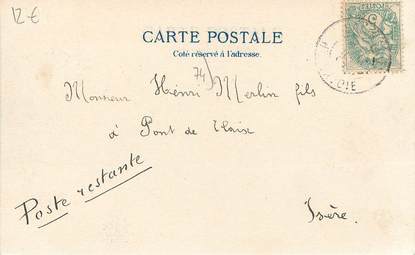 12 €
CARTE POSTALE
Côté réservé à l'adresse.
74
Monsieur Henri Merlin fils
à Pont de Claix
Poste restante
Isère.